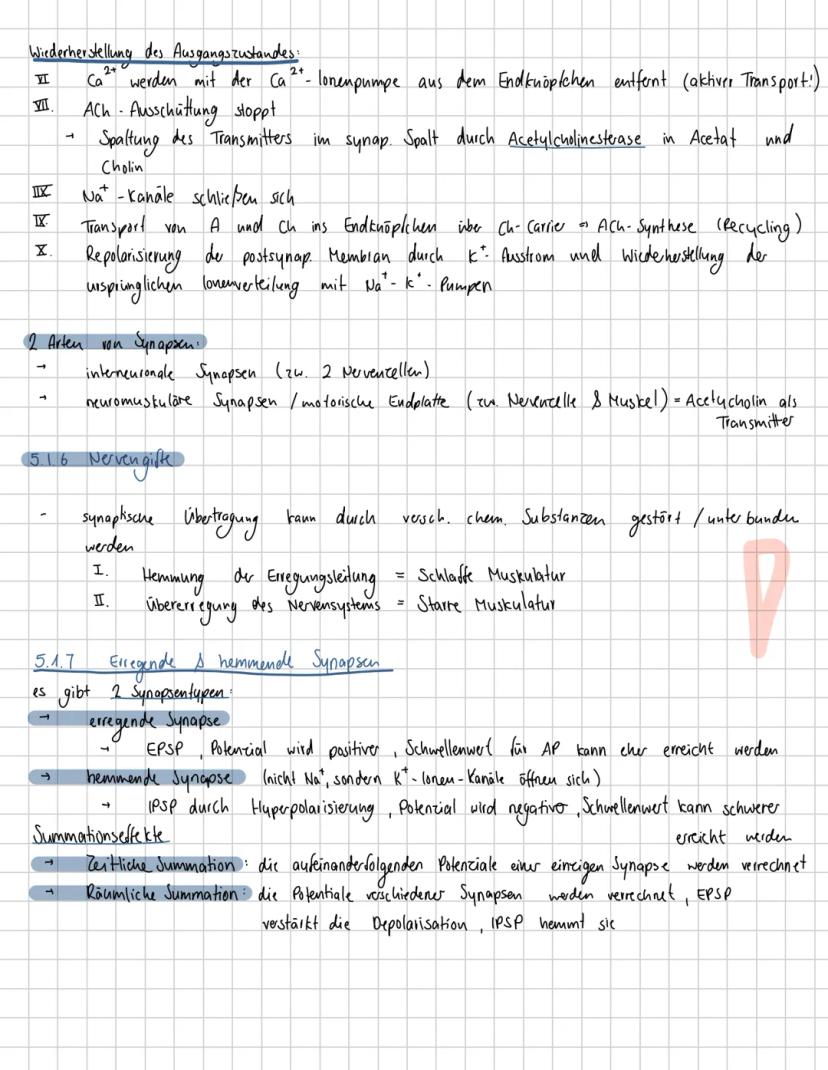 Wiederherstellung des Ausgangszustandes:
VI Ca2+ werden mit der Ca2+-Ionenpumpe aus dem Endknöpfchen entfernt (aktiver Transport!)
VII. ACh-Ausschüttung stoppt
→ Spaltung des Transmitters im synap. Spalt durch Acetylcholinesterase in Acetat und
Cholin
IIX Na+-Kanäle schließen sich
IX Transport von A und Ch ins Endknöpfchen über Ch-Carrier ⇒ ACh-Synthese (Recycling)
X. Repolarisierung der postsynap. Membran durch K+-Ausstrom und Wiederherstellung der
ursprünglichen Ionenverteilung mit Na+-K+-Pumpen
2 Arten von Synapsen:
→ interneuronale Synapsen (zw. 2 Nervenzellen)
→ neuromuskuläre Synapsen / motorische Endplatte (zw. Nervenzelle & Muskel) = Acetycholin als
Transmitter
5.1.6 Nervengifte
- synaptische Übertragung kann durch versch. chem. Substanzen gestört / unterbunden
werden
I. Hemmung der Erregungsleitung = Schlaffe Muskulatur
II. Übererregung des Nervensystems = Starre Muskulatur
5.1.7 Erregende & hemmende Synapsen
es gibt 2 Synapsentypen:
→ erregende Synapse
→ EPSP, Potenzial wird positiver, Schwellenwert für AP kann eher erreicht werden
→ hemmende Synapse (nicht Na+, sondern K+-Ionen-Kanäle öffnen sich)
→ IPSP durch Hyperpolarisierung, Potenzial wird negativer, Schwellenwert kann schwerer
erreicht werden
Summationseffekte
→ Zeitliche Summation: die aufeinanderfolgenden Potenziale einer einzigen Synapse werden verrechnet
→ Räumliche Summation: die Potentiale verschiedener Synapsen werden verrechnet, EPSP
verstärkt die Depolarisation, IPSP hemmt sie